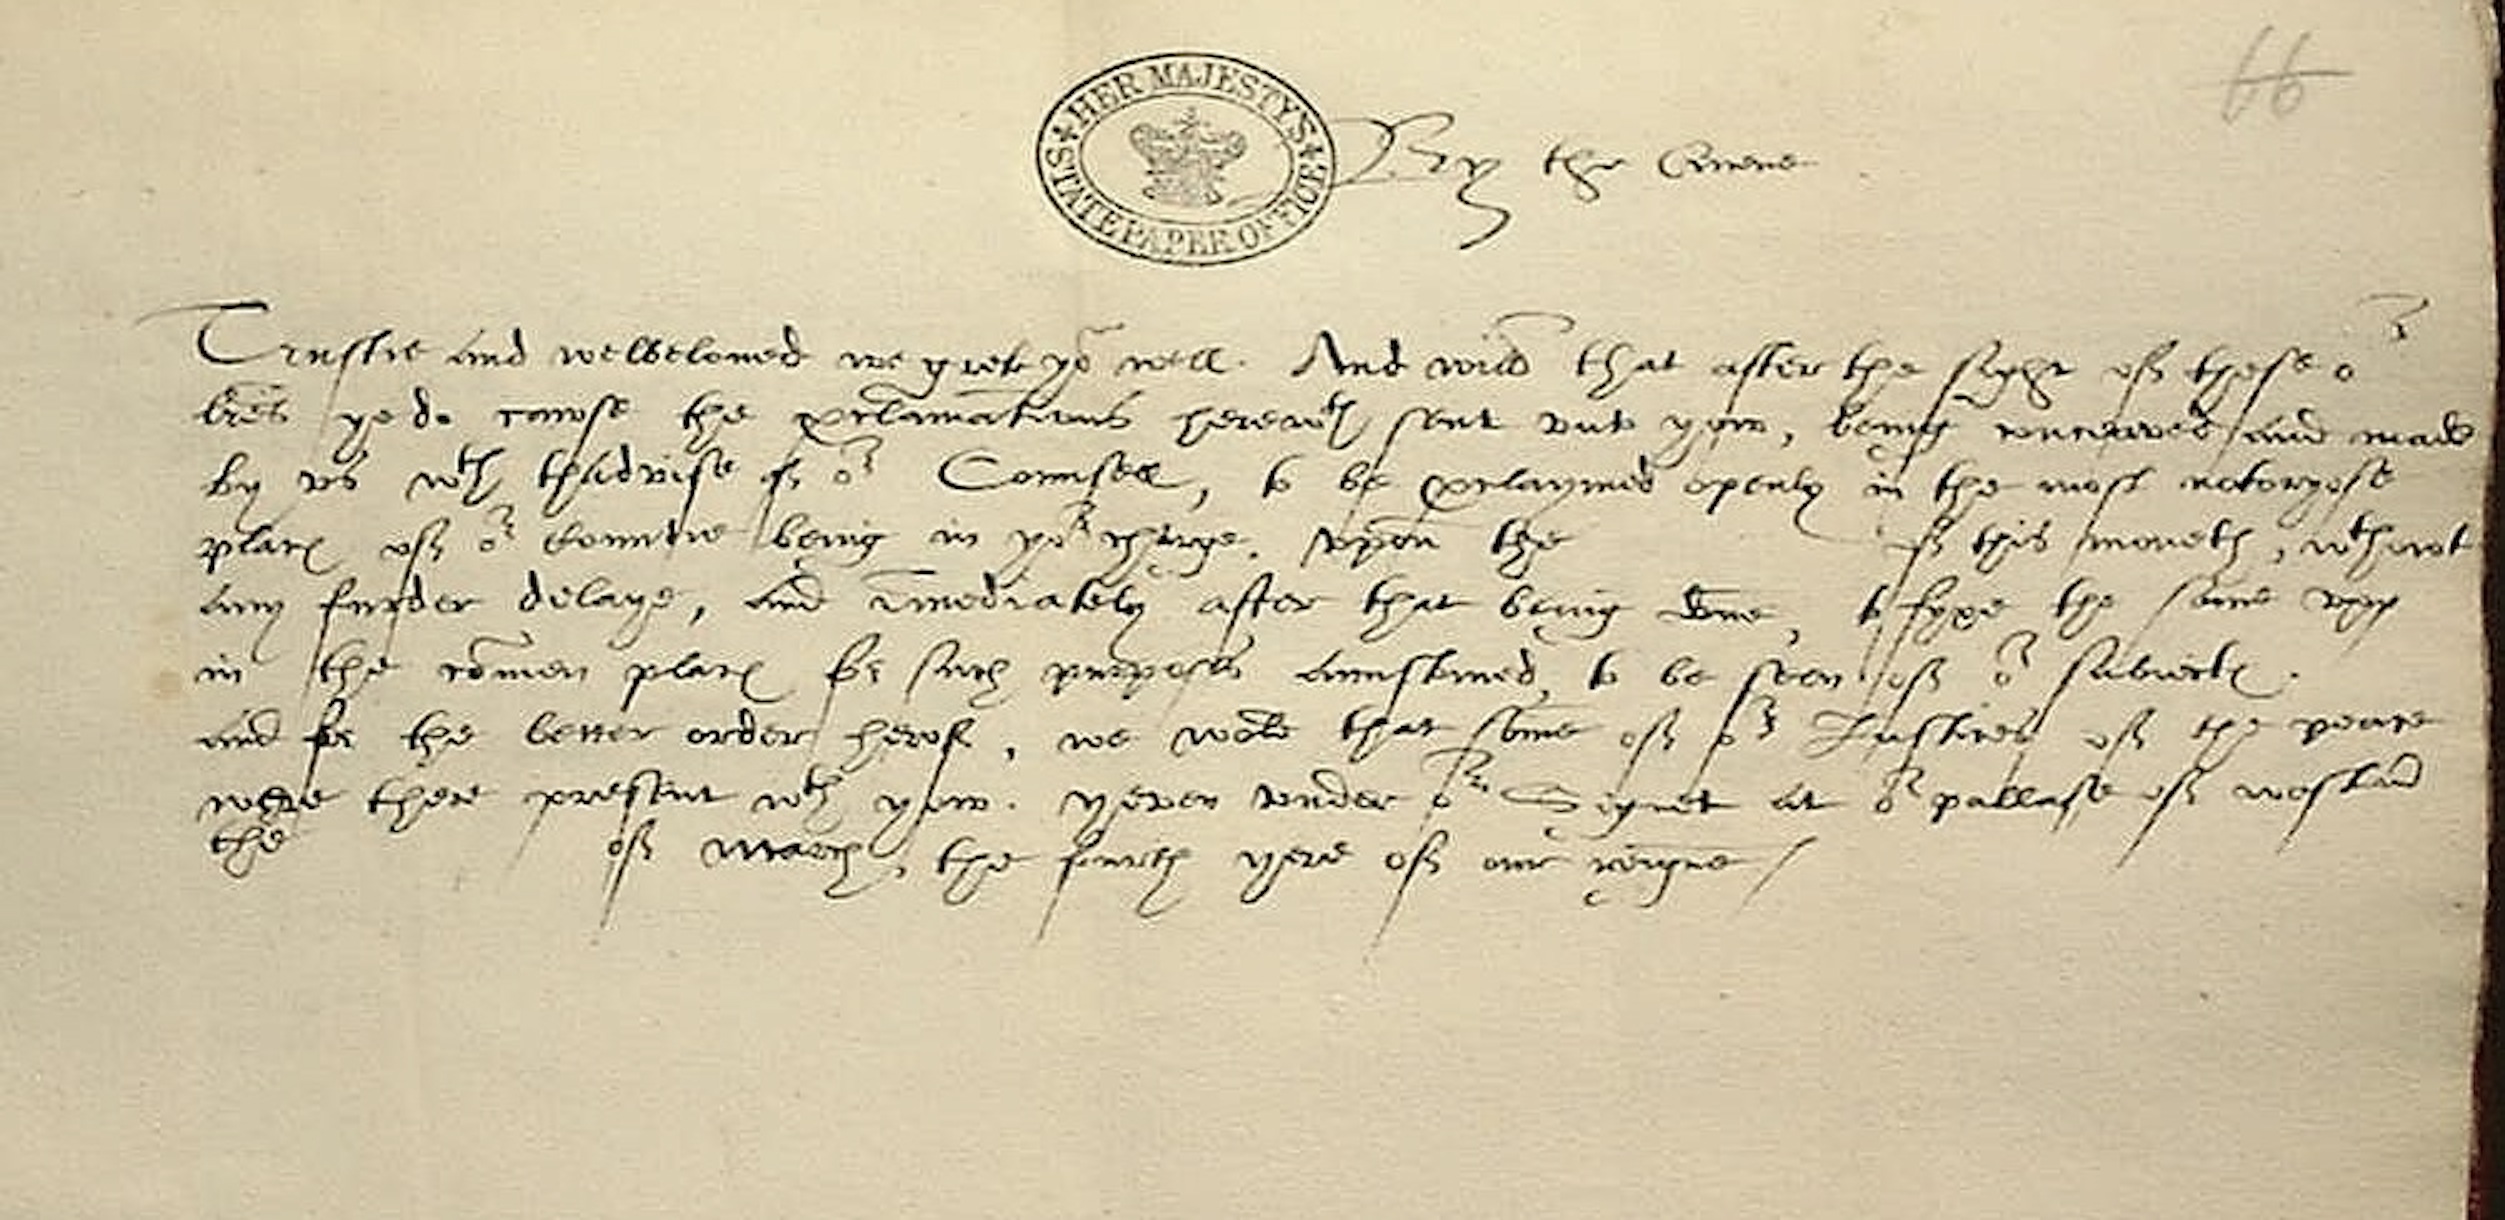 66
HER MAJESTY'S STATE PAPER OFFICE
By the Quene
Trustie and welbeloued we grete yoᵘ well. And will that after the syght off these oʳ
lr̃es ye do cawse the proclamations herewᵗʰ sent vnto yow, being conceaved and made
by vs wᵗʰ thadvise off oʳ Counsell, to be proclaymed openly in the most notoryose
places off oʳ Countrie being in yoʳ charge, vpon the off this moneth, wᵗʰowt
any furder delaye, and im̃ediately after that being done, to fyxe the same vpp
in the com̃en places for such purposes accustomed, to be seen off oʳ subiectes.
and for the better order herof, we wold that some off oʳ Justices off the peace
were there present wᵗʰ yow. yeven vnder oʳ Signet at oʳ pallase off westm̃
the off March, the fourth yere off our reigne /